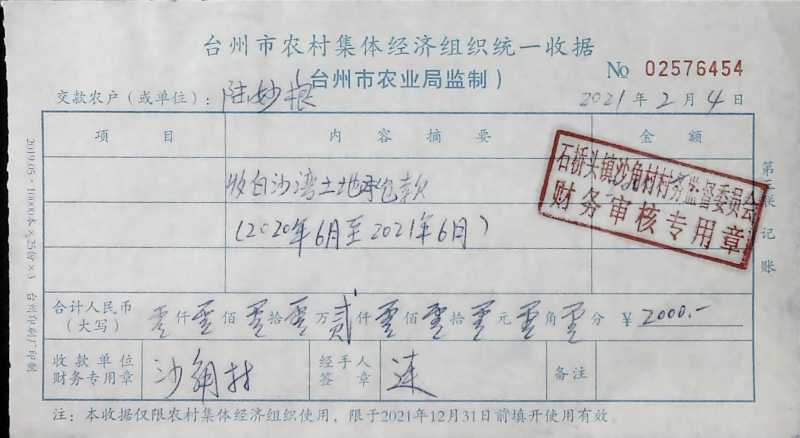 台州市农村集体经济组织统一收据
(台州市农业局监制)
No 02576454
交款农户(或单位):陆妙根
2021年2月4日
项目 内容摘要 金额
收白沙湾土地承包款
(2020年6月至2021年6月)
石桥头镇沙角村村务监督委员会
财务审核专用章
合计人民币(大写) 零仟零佰零拾零万贰仟零佰零拾零元零角零分 ¥ 2000.-
收款单位财务专用章 沙角村 经手人签章 连 备注
注:本收据仅限农村集体经济组织使用,限于2021年12月31日前填开使用有效。
第三联 记账
2019.05×10000本×25份×3 台州